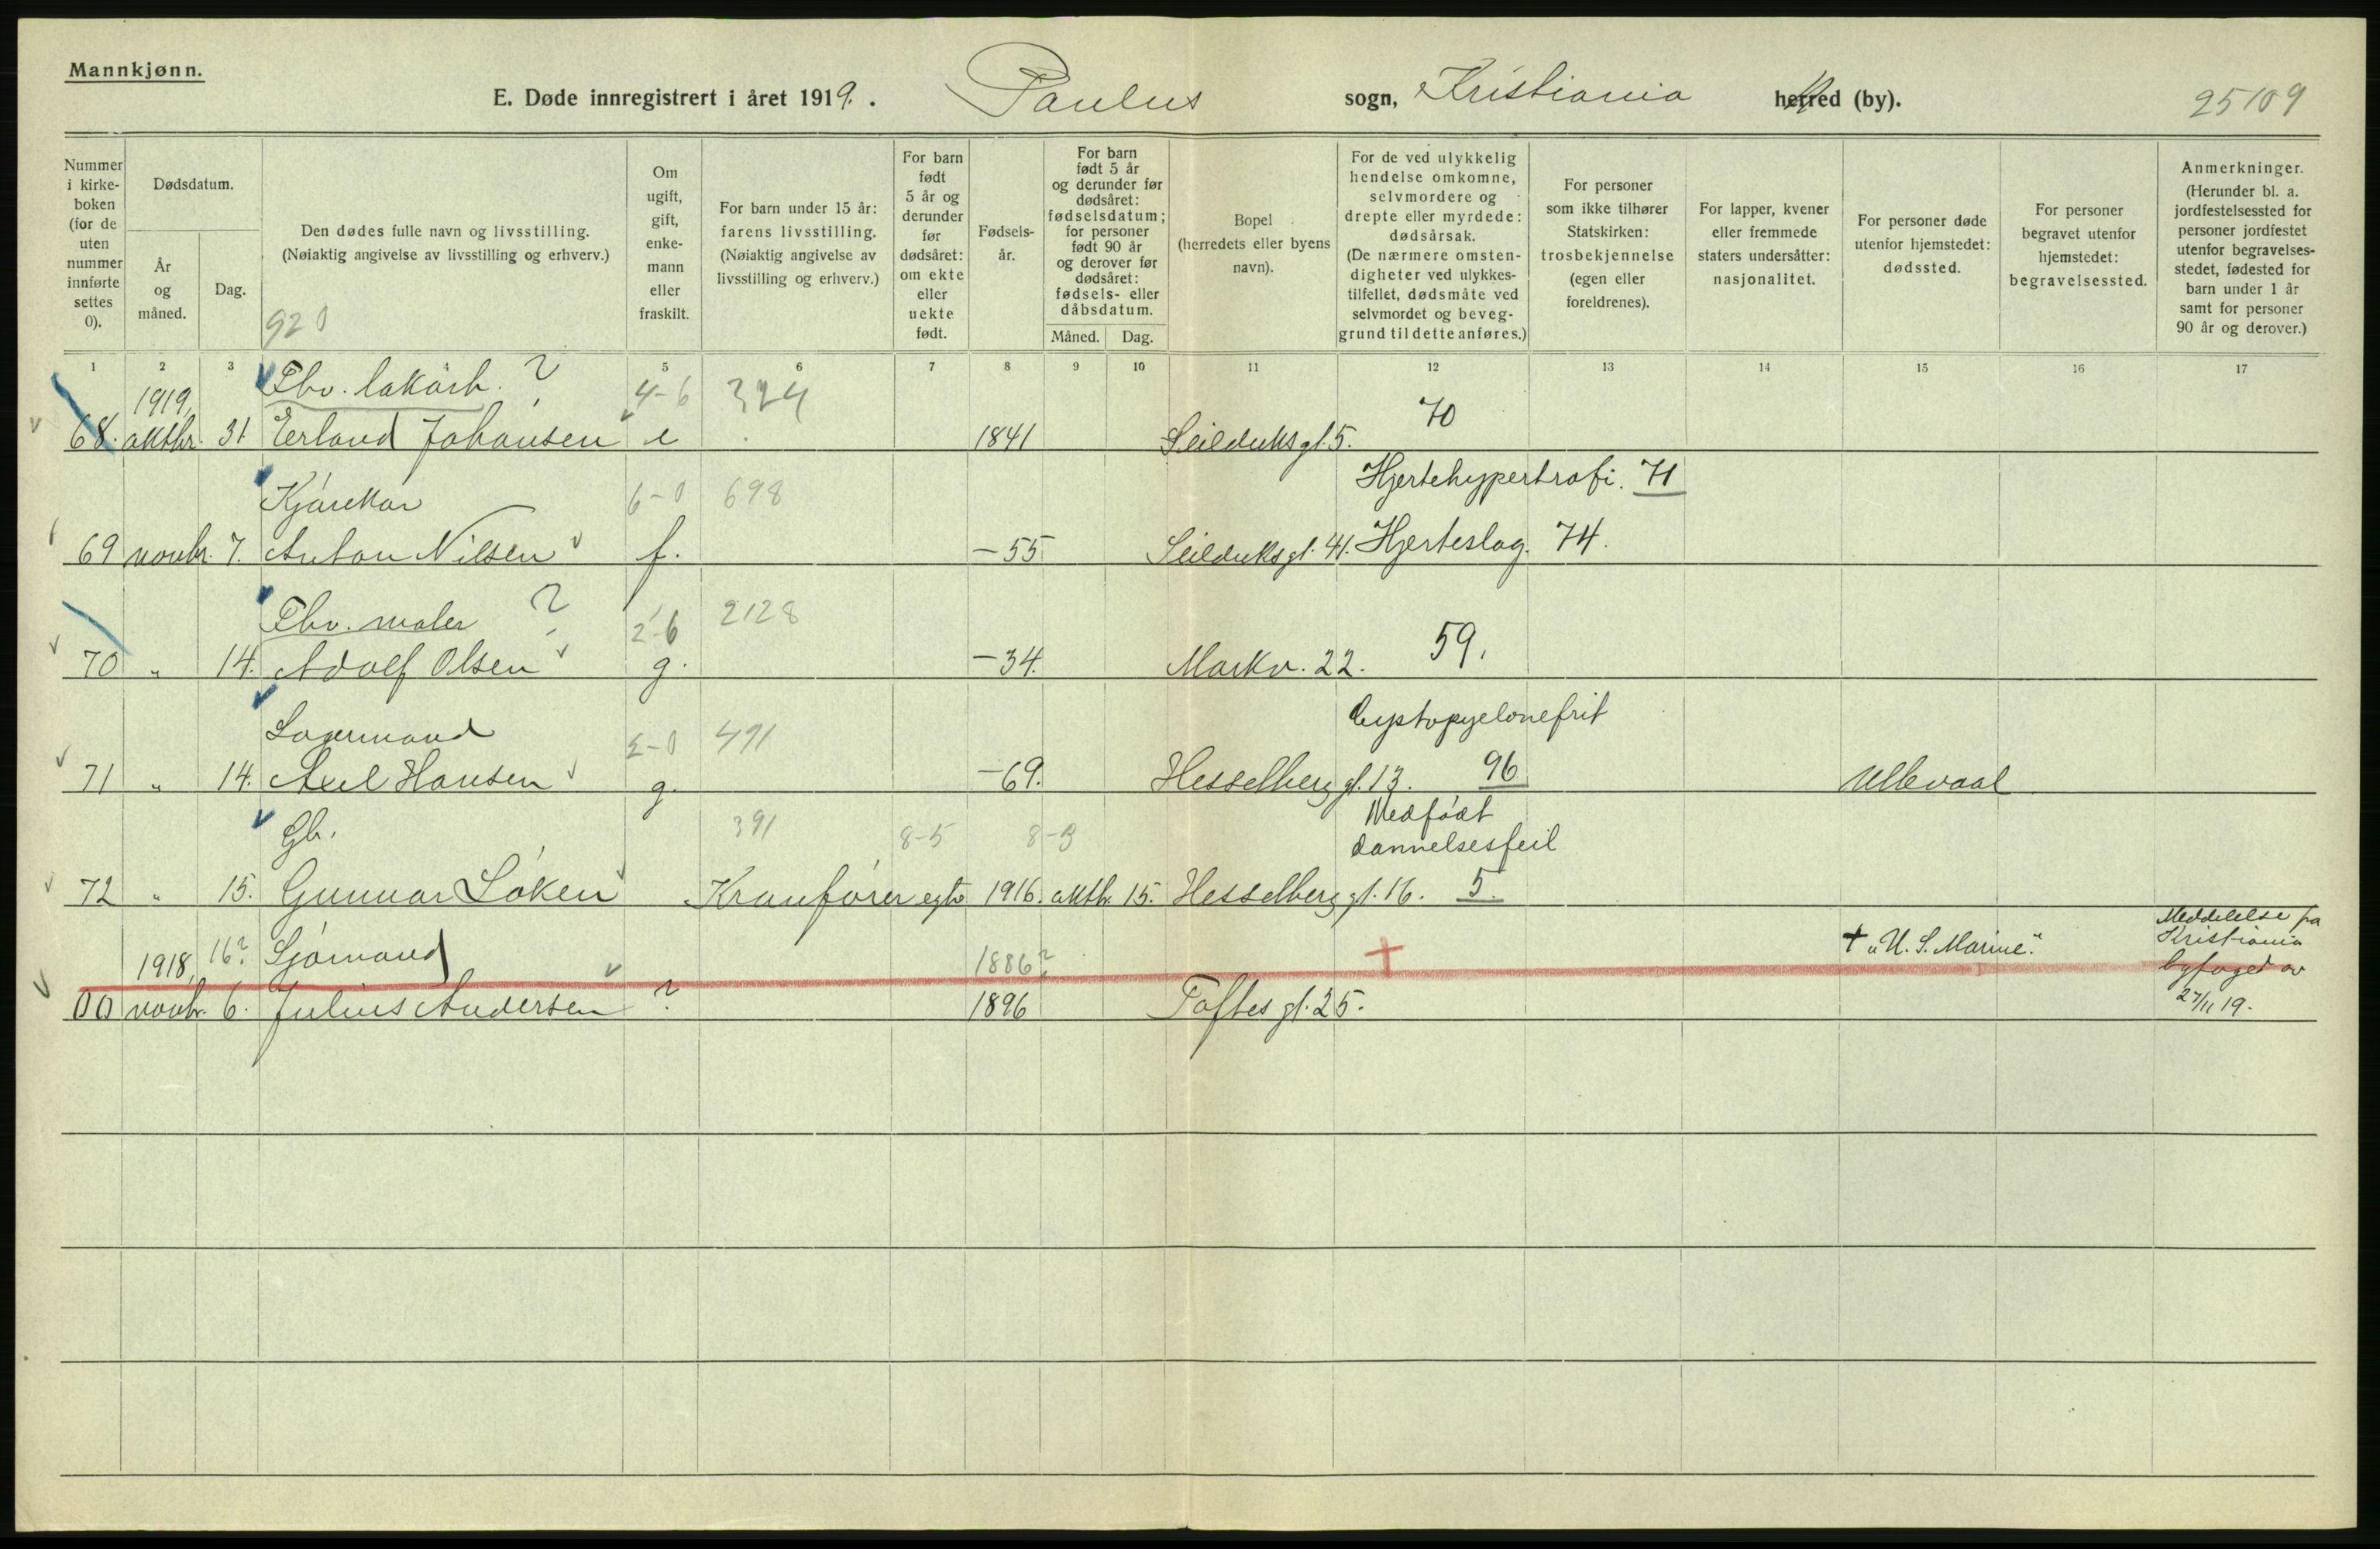 Mannkjønn.
E. Døde innregistrert i året 1919. Paulus sogn, Kristiania herred (by). 25109
Nummer i kirke- boken (for de uten nummer innførte settes 0).
Dødsdatum.
År og måned.
Dag.
Den dødes fulle navn og livsstilling.
(Nøiaktig angivelse av livsstilling og erhverv.)
920
Om ugift, gift, enke- mann eller fraskilt.
For barn under 15 år: farens livsstilling.
(Nøiaktig angivelse av livsstilling og erhverv.)
For barn født 5 år og derunder før dødsåret: om ekte eller uekte født.
Fødsels- år.
For barn født 5 år og derunder før dødsåret: fødselsdatum; for personer født 90 år og derover før dødsåret: fødsels- eller dåbsdatum.
Måned. Dag.
Bopel (herredets eller byens navn).
For de ved ulykkelig hendelse omkomne, selvmordere og drepte eller myrdede: dødsårsak.
(De nærmere omsten- digheter ved ulykkes- tilfellet, dødsmåte ved selvmordet og beveg- grund til dette anføres.)
For personer som ikke tilhører Statskirken: trosbekjennelse (egen eller foreldrenes).
For lapper, kvener eller fremmede staters undersåtter: nasjonalitet.
For personer døde utenfor hjemstedet: dødssted.
For personer begravet utenfor hjemstedet: begravelsessted.
Anmerkninger.
(Herunder bl. a. jordfestelsessted for personer jordfestet utenfor begravelses- stedet, fødested for barn under 1 år samt for personer 90 år og derover.)
1 2 3 5 6 7 8 9 10 11 12 13 14 15 16 17
1919, Fhv. lakarb. ? 4-6 324 70
68. oktbr. 31. Erland Johansen e 1841 Seilduksgt. 5.
Kjørekar 6-0 698 Hjertehypertrofi. 71
69 novbr. 7. Anton Nilsen f. -55 Seilduksgt. 41. Hjerteslag. 74.
Fhv. maler ? 2-6 2128
70 " 14. Adolf Olsen g. -34. Markv. 22. 59.
Lagermand 2-0 491 Cystopyelonefrit
71 " 14. Axel Hansen g. -69. Hesselberg gt. 13. 96 Ullevaal
Gb. 391 8-5 8-3 Medfødt dannelsesfeil
72 " 15. Gunnar Løken Kranfører egte 1916. oktb. 15. Hesselberg gt. 16. 5.
1918, 16? Sjømand 1886? + + "U. S. Marine." Meddelelse fra Kristiania byfoged av 27/11 19.
00 novbr. 6. Julius Andersen ? 1896 Toftes gt. 25.